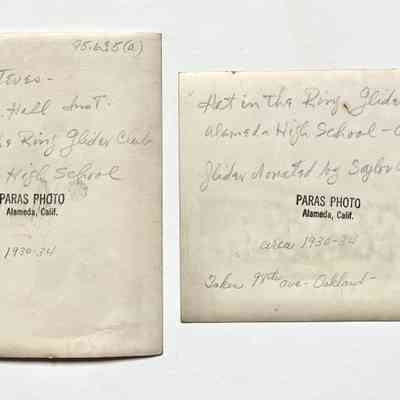 95.635(a)
Teves-
. Hall Inst.
e Ring Glider Club
High School
PARAS PHOTO
Alameda, Calif.
1930-34
Hat in the Ring Glider
Alameda High School -
Glider donated by Saylor
PARAS PHOTO
Alameda, Calif.
area 1930-34
Taken 98th ave - Oakland -